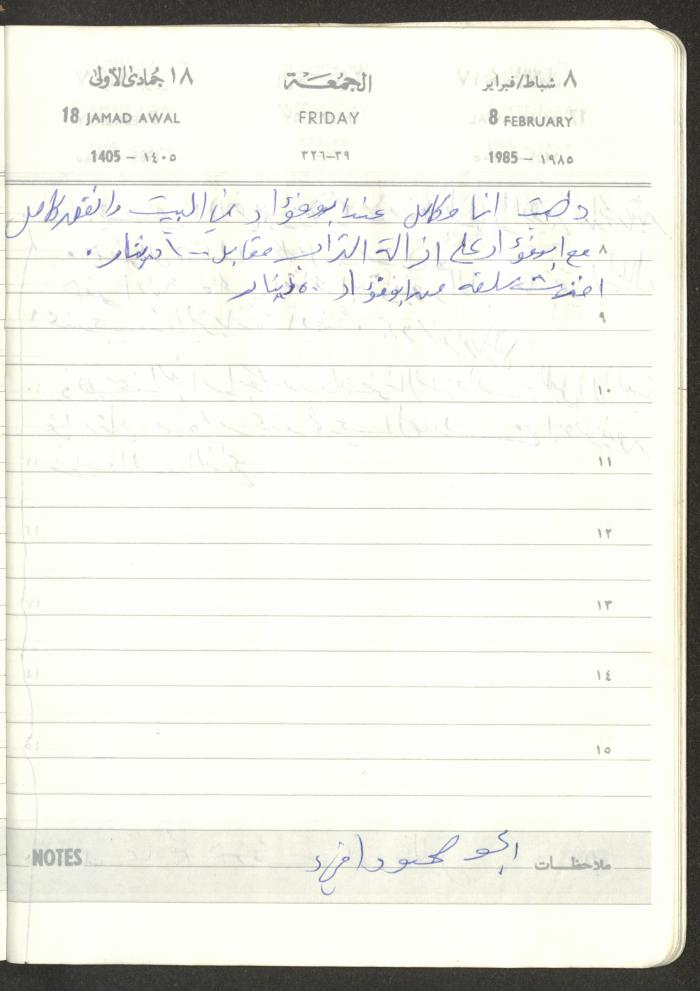 ٨ شباط/فبراير الجمعة ١٨ جمادى الأولى
8 FEBRUARY FRIDAY 18 JAMAD AWAL
1985 - ١٩٨٥ ٣٩-٣٢٦ 1405 - ١٤٠٥
ذهبت انا وكامل عند ابو فؤاد في البيت واتفق كامل
٨ مع ابو فؤاد على ازالة التراب مقابل دينار.
اخذت سلفه من ابو فؤاد ٥٠ دينار
٩
١٠
١١
١٢
١٣
١٤
١٥
ملاحظات الجو NOTES